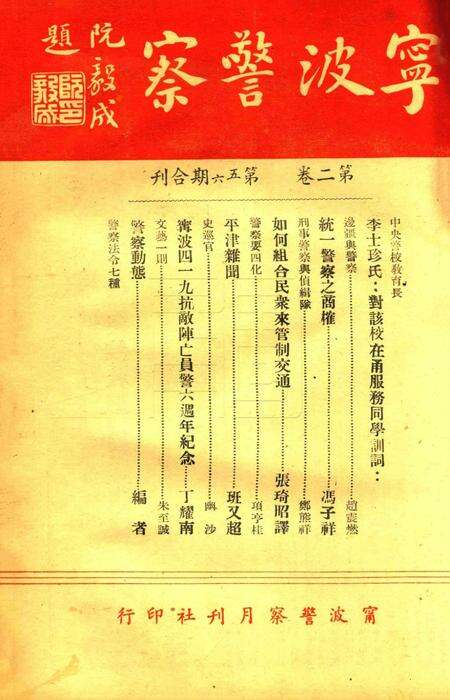 寧波警察
阮毅成題
第二卷 第五六期合刊
中央警校教育長
李士珍氏：對該校在甬服務同學訓詞
邊疆與警察 趙震燃
統一警察之商榷 馮子祥
刑事警察與偵緝隊 鄭熊祥
如何組合民衆來管制交通 張琦昭譯
警察要四化 項亨桂
平津雜聞 班又超
史巡官 幽沙
寗波四一九抗敵陣亡員警六週年紀念 丁耀南
文藝一則 朱至誠
警察動態 編者
警察法令七種
甯波警察月刊社印行